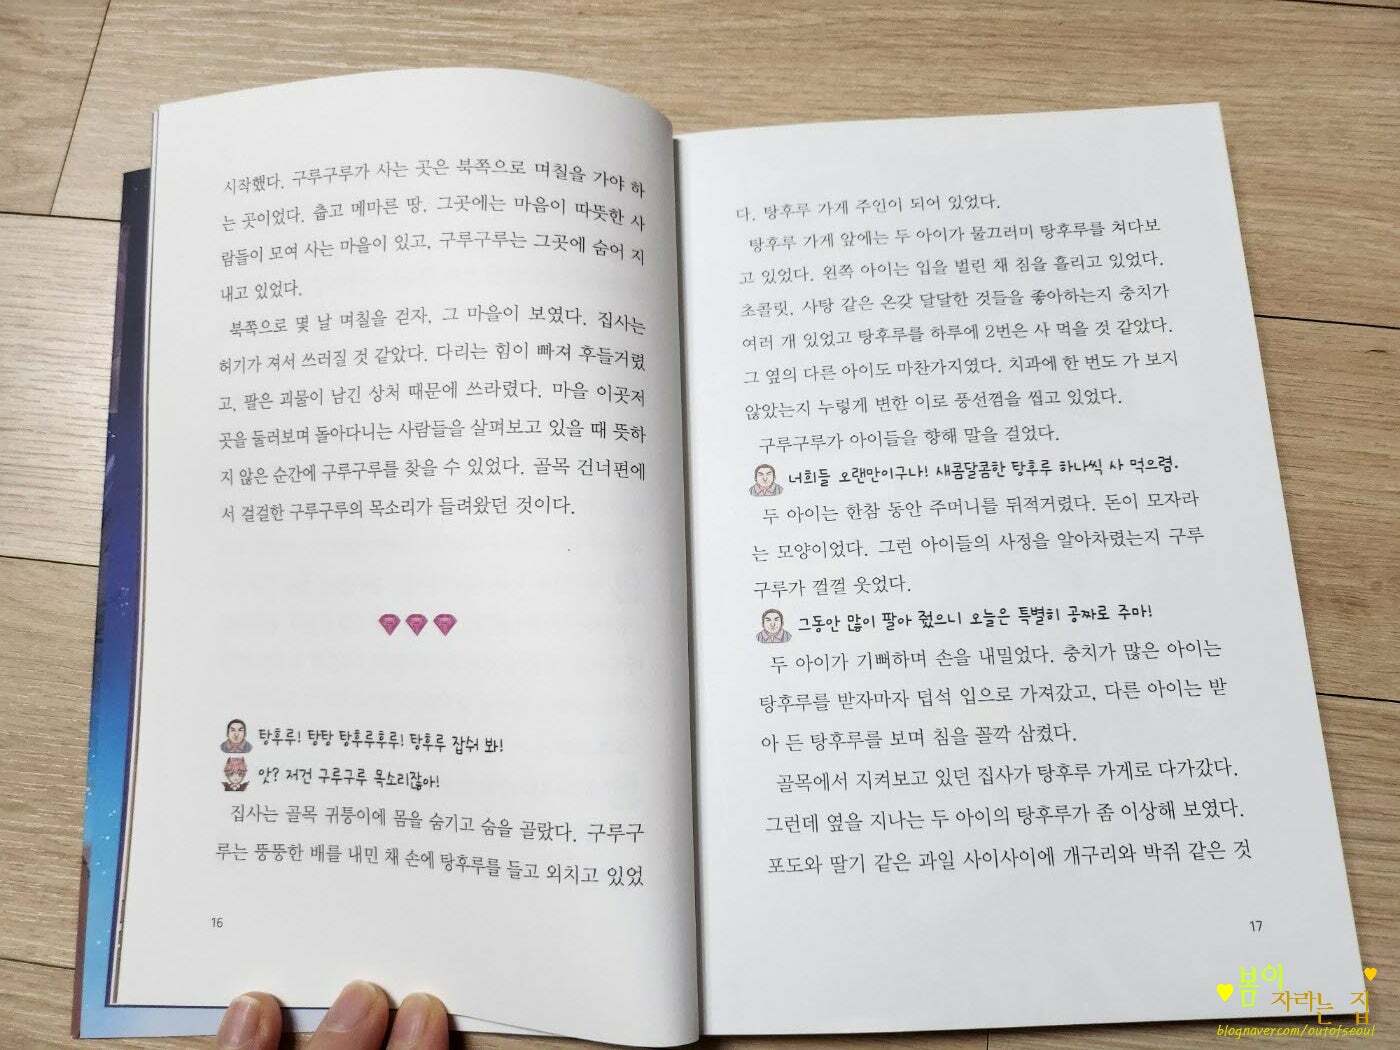 시작했다. 구루구루가 사는 곳은 북쪽으로 며칠을 가야 하
는 곳이었다. 춥고 메마른 땅. 그곳에는 마음이 따뜻한 사
람들이 모여 사는 마을이 있고, 구루구루는 그곳에 숨어 지
내고 있었다.
북쪽으로 몇 날 며칠을 걷자, 그 마을이 보였다. 집사는
허기가 져서 쓰러질 것 같았다. 다리는 힘이 빠져 후들거렸
고, 팔은 괴물이 남긴 상처 때문에 쓰라렸다. 마을 이곳저
곳을 둘러보며 돌아다니는 사람들을 살펴보고 있을 때 뜻하
지 않은 순간에 구루구루를 찾을 수 있었다. 골목 건너편에
서 걸걸한 구루구루의 목소리가 들려왔던 것이다.
탕후루! 탕탕 탕후루후루! 탕후루 잡숴 봐!
앗? 저건 구루구루 목소리잖아!
집사는 골목 귀퉁이에 몸을 숨기고 숨을 골랐다. 구루구
루는 뚱뚱한 배를 내민 채 손에 탕후루를 들고 외치고 있었
16
다. 탕후루 가게 주인이 되어 있었다.
탕후루 가게 앞에는 두 아이가 물끄러미 탕후루를 쳐다보
고 있었다. 왼쪽 아이는 입을 벌린 채 침을 흘리고 있었다.
초콜릿, 사탕 같은 온갖 달달한 것들을 좋아하는지 충치가
여러 개 있었고 탕후루를 하루에 2번은 사 먹을 것 같았다.
그 옆의 다른 아이도 마찬가지였다. 치과에 한 번도 가 보지
않았는지 누렇게 변한 이로 풍선껌을 씹고 있었다.
구루구루가 아이들을 향해 말을 걸었다.
너희들 오랜만이구나! 새콤달콤한 탕후루 하나씩 사 먹으렴.
두 아이는 한참 동안 주머니를 뒤적거렸다. 돈이 모자라
는 모양이었다. 그런 아이들의 사정을 알아차렸는지 구루
구루가 껄껄 웃었다.
그동안 많이 팔아 줬으니 오늘은 특별히 공짜로 주마!
두 아이가 기뻐하며 손을 내밀었다. 충치가 많은 아이는
탕후루를 받자마자 덥석 입으로 가져갔고, 다른 아이는 받
아 든 탕후루를 보며 침을 꼴깍 삼켰다.
골목에서 지켜보고 있던 집사가 탕후루 가게로 다가갔다.
그런데 옆을 지나는 두 아이의 탕후루가 좀 이상해 보였다.
포도와 딸기 같은 과일 사이사이에 개구리와 박쥐 같은 것
17
봄이
자라는 집
blog.naver.com/outofseoul